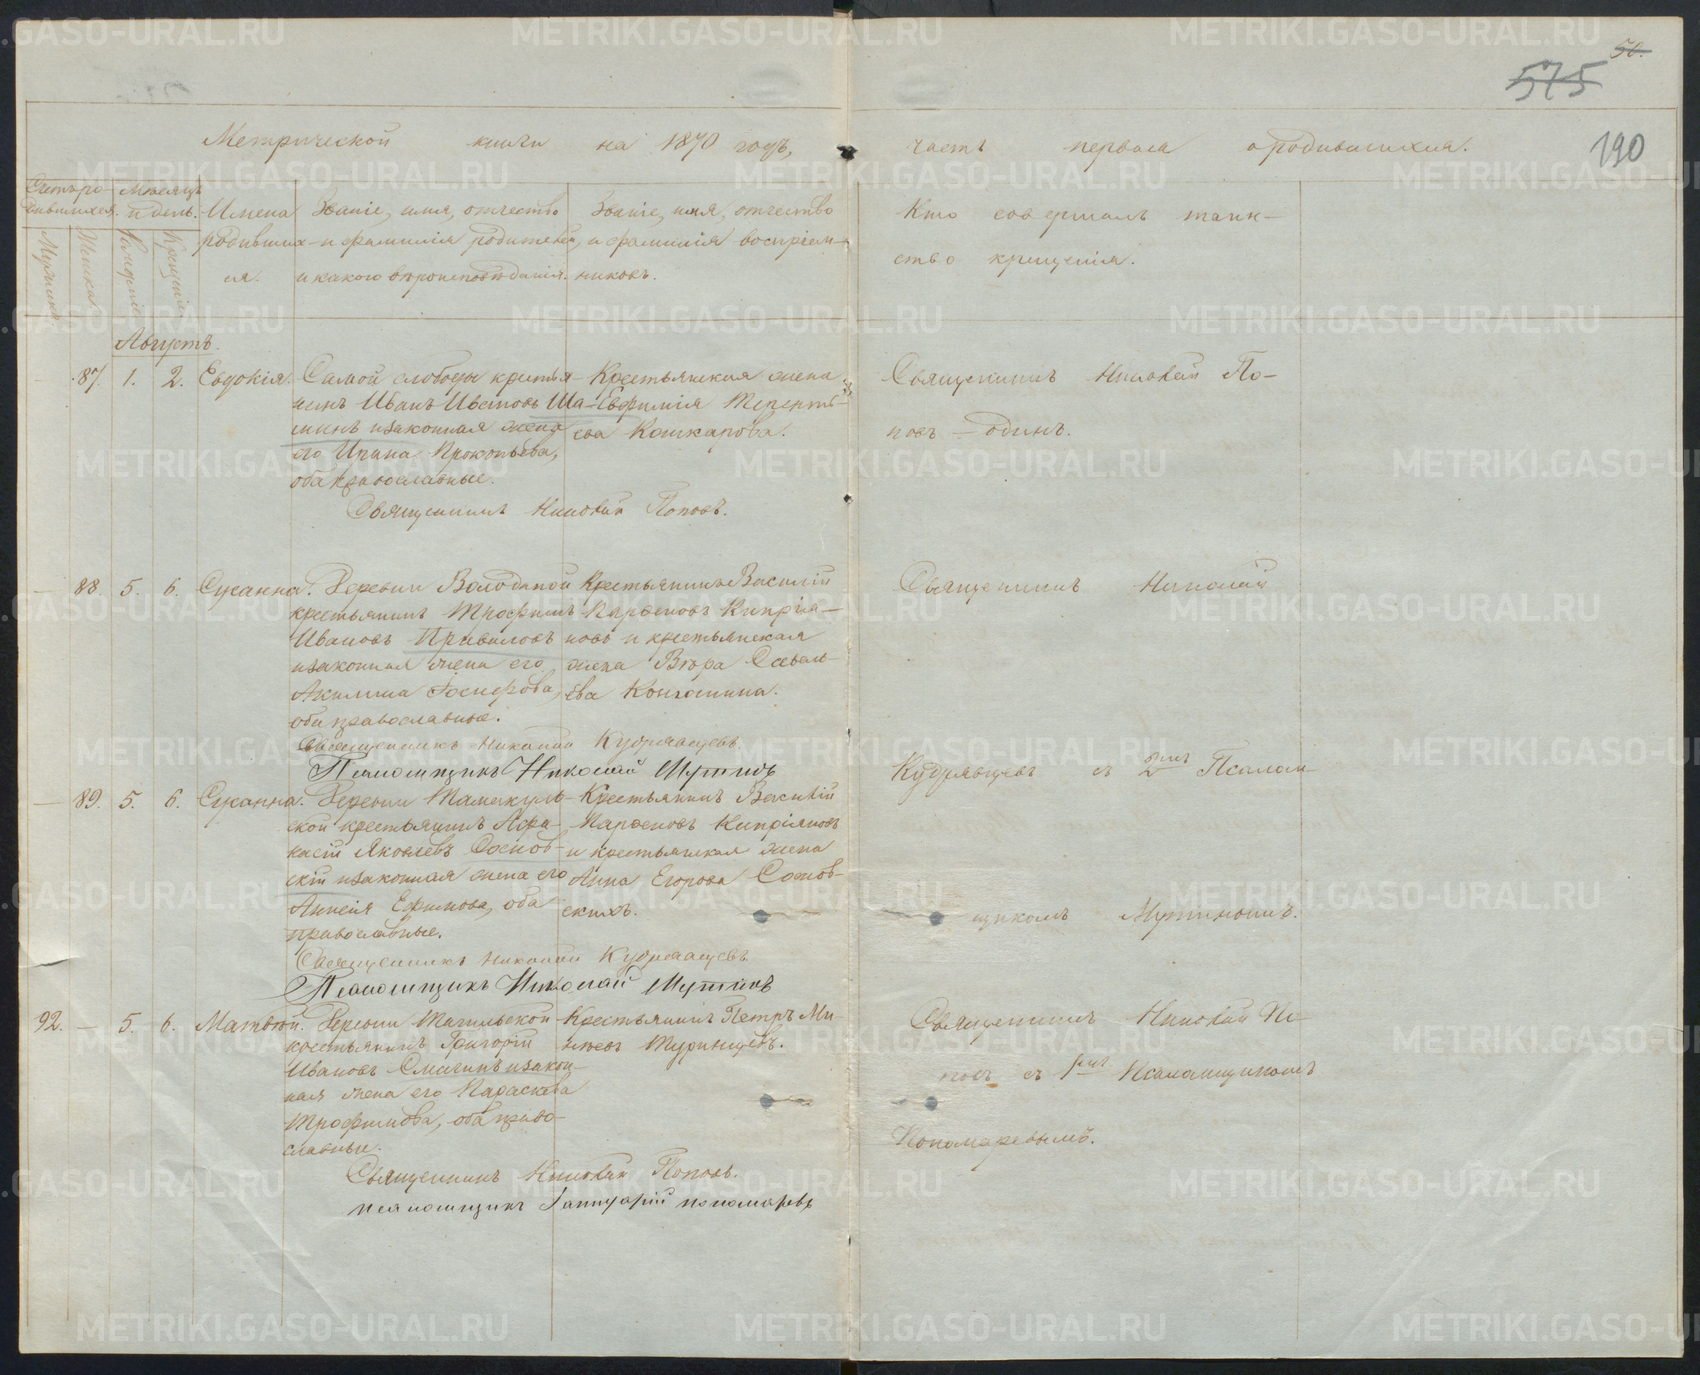 50.
575
190
Метрической книги на 1870 годъ, часть первая о родившихся.
Счетъ ро-
дившихся.
Мѣсяцъ
и день.
Мужеска
Женска
Рожденія
Крещенія
Имена
родивших-
ся.
Званіе, имя, отчество
и фамилія родителей,
и какого вѣроисповѣданія.
Званіе, имя, отчество
и фамилія воспріем-
никовъ.
Кто совершалъ таин-
ство крещенія.
Августъ.
87. 1. 2. Евдокія.
Самой слободы крестья-
нинъ Иванъ
и законная жена
его Прокопьева,
оба православные.
Священникъ Николай Поповъ.
Крестьянская жена
Евфимія Терентьѣ-
ева Кошкарова.
Священникъ Николай По-
повъ – одинъ.
88. 5. 6. Сусанна.
Деревни Володиной
крестьянинъ Трофимъ
Ивановъ Приваловъ
и законная жена его
Акилина
оба православные.
Священникъ Николай Кудрявцевъ.
Псаломщикъ Николай Мутинъ
Крестьянинъ Василій
Парѳеновъ Кипрія-
новъ и крестьянская
жена Вѣра Савель-
ева
Священникъ Николай
Кудрявцевъ съ 2мъ Псалом-
щикомъ Мутинымъ.
89. 5. 6. Сусанна.
Деревни Тамакуль-
ской крестьянинъ Афа-
насій Яковлевъ Соснов-
скій и законная жена его
Анисія Ефимова, оба
православные.
Священникъ Николай Кудрявцевъ
Псаломщикъ Николай Мутинъ
Крестьянинъ Василій
Парѳеновъ Кипріяновъ
и крестьянская жена
Анна Егорова Соснов-
скихъ.
92. – 5. 6. Матвѣй.
Деревни Тагильской
крестьянинъ Григорій
Ивановъ Смагинъ и закон-
ная жена его Параскева
Трофимова, оба право-
славные.
Священникъ Николай Поповъ.
псаломщикъ Іаннуарій пономаревъ
Крестьянинъ Петръ Ми-
хѣевъ Туринцевъ.
Священникъ Николай По-
повъ съ 1мъ Псаломщикомъ
Пономаревымъ.